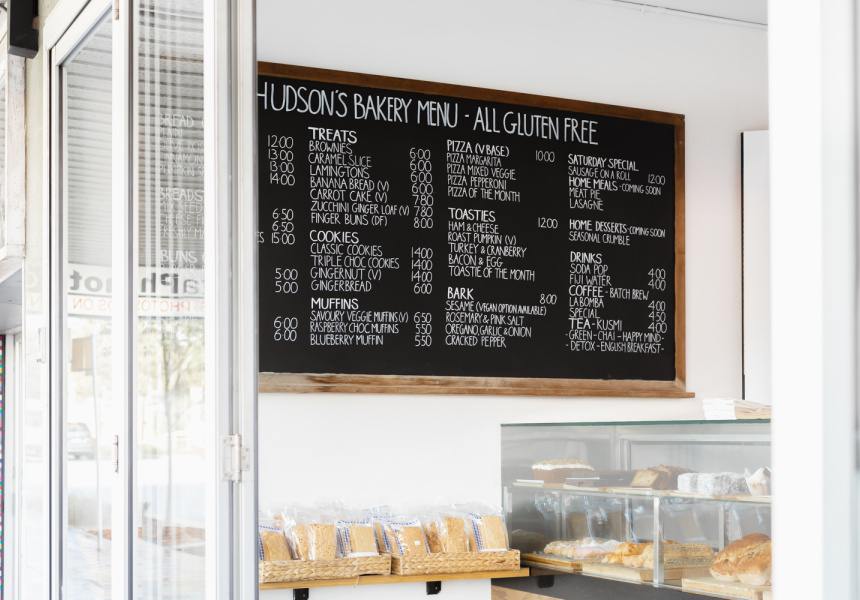 HUDSON'S BAKERY MENU - ALL GLUTEN FREE
12.00
13.00
13.00
14.00
6.50
6.50
ES 15.00
5.00
5.00
6.00
6.00
TREATS
BROWNIES 6.00
CARAMEL SLICE 6.00
LAMINGTONS 6.00
BANANA BREAD (V) 6.00
CARROT CAKE (V) 7.80
ZUCCHINI GINGER LOAF (V) 7.80
FINGER BUNS (DF) 8.00
COOKIES
CLASSIC COOKIES 14.00
TRIPLE CHOC COOKIES 14.00
GINGERNUT (V) 14.00
GINGERBREAD 6.00
MUFFINS
SAVOURY VEGGIE MUFFINS (V) 6.50
RASPBERRY CHOC MUFFINS 5.50
BLUEBERRY MUFFIN 5.50
PIZZA (V BASE) 10.00
PIZZA MARGARITA
PIZZA MIXED VEGGIE
PIZZA PEPPERONI
PIZZA OF THE MONTH
TOASTIES 12.00
HAM & CHEESE
ROAST PUMPKIN (V)
TURKEY & CRANBERRY
BACON & EGG
TOASTIE OF THE MONTH
BARK 8.00
SESAME (VEGAN OPTION AVAILABLE)
ROSEMARY & PINK SALT
OREGANO, GARLIC & ONION
CRACKED PEPPER
SATURDAY SPECIAL
SAUSAGE ON A ROLL 12.00
HOME MEALS - COMING SOON
MEAT PIE
LASAGNE
HOME DESSERTS - COMING SOON
SEASONAL CRUMBLE
DRINKS
SODA POP 4.00
FIJI WATER 4.00
COFFEE - BATCH BREW
LA BOMBA 4.00
SPECIAL 4.50
TEA - KUSMI 4.00
- GREEN - CHAI - HAPPY MIND -
- DETOX - ENGLISH BREAKFAST -